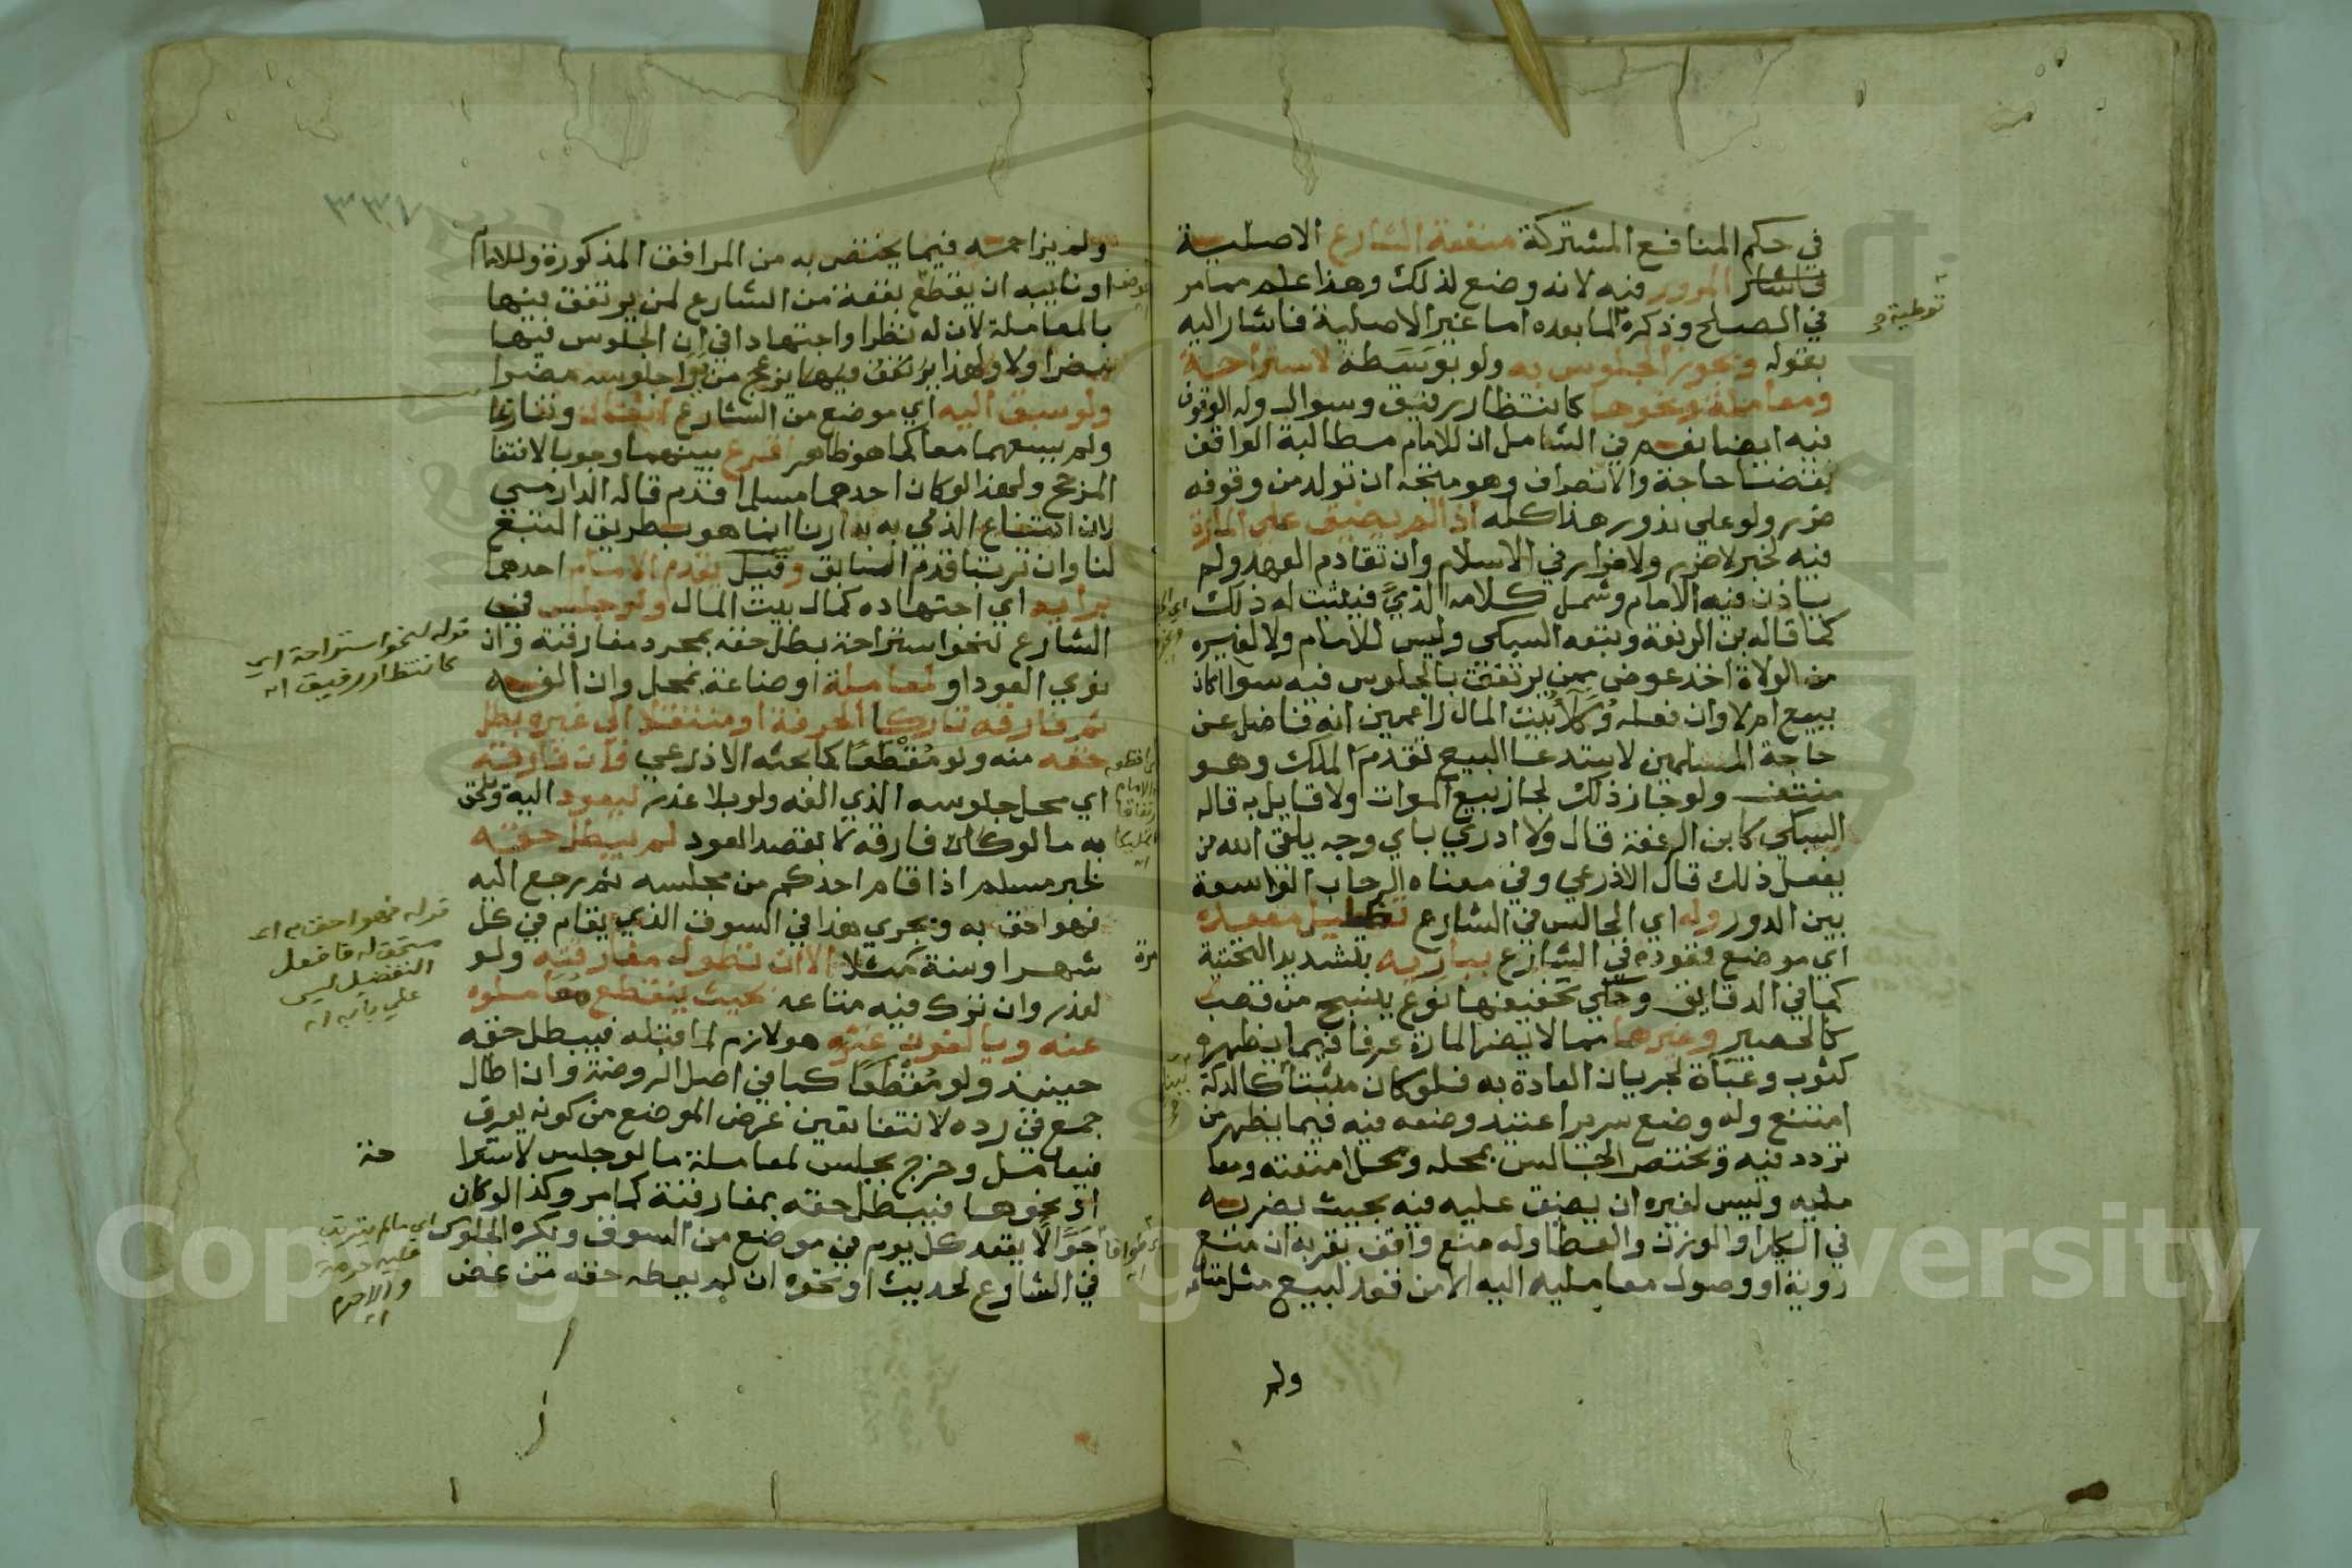 في حكم المنافع المشتركة منفعة الشارع الاصلية
المرور فيه لانه وضع لذلك وهذا علم مما مر
في الصلح وذكره لما بعده اما غير الاصلية فاشار اليه
بقوله ويجوز الجلوس به ولو بوسطه لاستراحة
ومعاملة ونحوها كانتظار رفيق وسوال وله الوقوف
فيه ايضا نعم في الشامل ان للامام مطالبة الواقف
بقضا حاجة والانصراف وهو متجه ان تولد من وقوفه
ضرر ولو على ندور هذا كله اذا لم يضيق على المارة
فيه لخبر لا ضرر ولا ضرار في الاسلام وان تقادم العهد ولم
ياذن فيه الامام وشمل كلامه الذمي فيثبت له ذلك
كما قاله بن الرفعة وتبعه السبكي وليس للامام ولا لغيره
من الولاة اخذ عوض ممن يرتفق بالجلوس فيه سوا اكان
ببيع ام لا وان فعله وكلا بيت المال زاعمين انه فاضل عن
حاجة المسلمين لاستدعا البيع تقدم الملك وهو
منتف ولو جاز ذلك لجاز بيع الموات ولا قايل به قاله
السبكي كابن الرفعة قال ولا ادري باي وجه يلقى الله من
يفعل ذلك قال الاذرعي وفي معناه الرحاب الواسعة
بين الدور وله اي الجالس في الشارع تظليل مقعده
اي موضع قعوده في الشارع ببارية بتشديد التحتية
كما في الدقايق وحكي تخفيفها نوع ينسج من قصب
كالحصير وغيرها مما لا يضر المارة عرفا فيما يظهر
كثوب وعباة لجريان العادة به فلو كان مثبتا كالدكة
امتنع وله وضع سرير اعتيد وضعه فيه فيما يظهر من
تردد فيه ويختص الجالس بمحله ومحل امتعته ومعا
مليه وليس لغيره ان يضيق عليه فيه بحيث يضر به
في الكيل او الوزن والعطا وله منع واقف بقربه ان منع
روية او وصول معامليه اليه لا من قعد لبيع مثل متاعه
ولم
توطية
ولم يزاحمه فيما يختص به من المرافق المذكورة وللامام
او نايبه ان يقطع بقعة من الشارع لمن يرتفق فيها
بالمعاملة لان له نظرا واجتهادا في ان الجلوس فيها
مضر اولا ولهذا يزعج من راى جلوسه مضرا
ولو سبق اليه اي موضع من الشارع اثنان وتنازعا
ولم يسعهما معا كما هو ظاهر اقرع بينهما وجوبا لانتفا
المرجح ولهذا لو كان احدهما مسلما قدم قاله الدارمي
لان انتفاع الذمي به بدارنا انما هو بطريق التبع
لنا وان ترتبا قدم السابق وقيل يقدم الامام احدهما
برايه اي اجتهاده كمال بيت المال ولو جلس في
الشارع لنحو استراحة بطل حقه بمجرد مفارقته وان
نوى العود او لمعاملة او صناعة بمحل وان الفه
ثم فارقه تاركا الحرفة او منتقلا الى غيره بطل
حقه منه ولو مقطعا كما بحثه الاذرعي وان فارقه
اي محل جلوسه الذي الفه ولو بلا عذر ليعود اليه ويلحق
به ما لو كان فارقه لا بقصد العود لم يبطل حقه
لخبر مسلم اذا قام احدكم من مجلسه ثم رجع اليه
فهو احق به ويجري هذا في السوق الذي يقام في كل
شهر او سنة مثلا الا ان تطول مفارقته ولو
لعذر وان ترك فيه متاعه بحيث ينقطع معاملوه
عنه ويالفون غيره هو لازم لما قبله فيبطل حقه
حينئذ ولو مقطعا كما في اصل الروضة وان اطال
جمع في رده لانتفا تعين غرض الموضع من كونه يعرف
فيعامل وخرج بجلس لمعاملة ما لو جلس لاسترا
حة
او نحوها فيبطل حقه بمفارقته كما مر وكذا لو كان
جوالا يقعد كل يوم في موضع من السوق ويكره الجلوس
في الشارع لحديث او نحوه ان لم يعطه حقه من غض
مرة
قوله لنحو استراحة اي
كانتظار رفيق اه
قوله فهو احق به اي
مستحق له فافعل
التفضيل ليس
على بابه اه
اي ما لم يترتب
عليه حرمة
والا حرم
اه
٣٣٧
Copyright © King Saud University